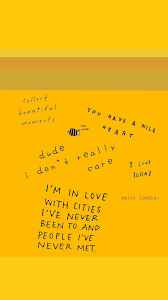 collect
beautiful
moments
YOU HAVE A NICE
HEART
dude
i don't really
care
I LOVE
TODAY
exist loudly
I'M IN LOVE
WITH CITIES
I'VE NEVER
BEEN TO AND
PEOPLE I'VE
NEVER MET.